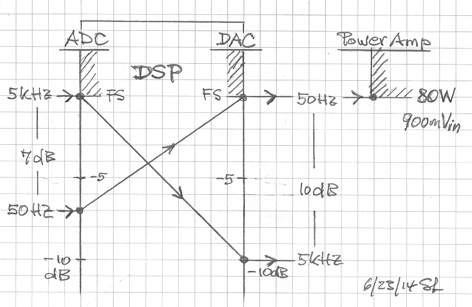 ADC DAC Power Amp
DSP
5kHz FS FS 50Hz 80W
900mVin
7dB
-5 -5 10dB
50Hz
-10 -10dB 5kHz
dB
6/23/14 SL